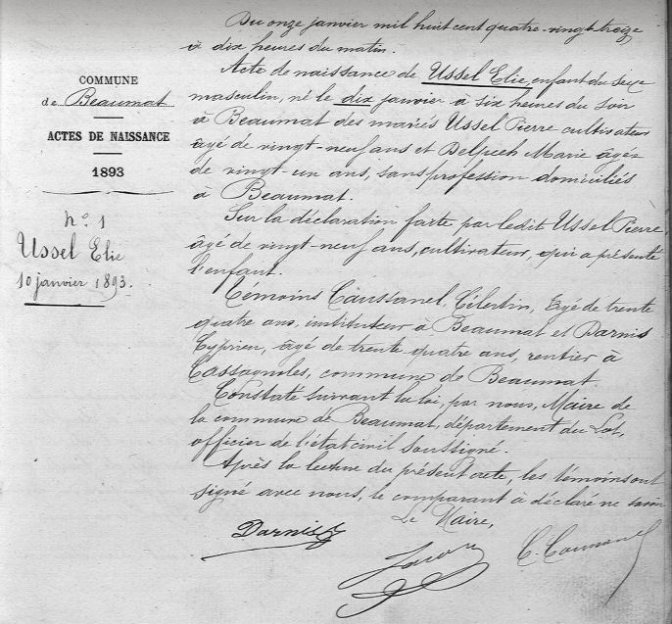 COMMUNE
de Beaumat
ACTES DE NAISSANCE
1893
n° 1
Ussel Elie
10 janvier 1893.
Du onze janvier mil huit cent quatre-vingt treize
à dix heures du matin.
Acte de naissance de Ussel Elie, enfant du sexe
masculin, né le dix janvier à six heures du soir
à Beaumat des mariés Ussel Pierre cultivateur
âgé de vingt-neuf ans et Delpech Marie âgée
de vingt-un ans, sans profession domiciliés
à Beaumat.
Sur la déclaration faite par ledit Ussel Pierre,
âgé de vingt-neuf ans, cultivateur, qui a présenté
l'enfant.
Témoins Caussanel, Célestin, âgé de trente
quatre ans, instituteur à Beaumat et Darnis
Cyprien, âgé de trente quatre ans, rentier à
Cassagnoles, commune de Beaumat.
Constaté suivant la loi, par nous, Maire de
la commune de Beaumat, département du Lot,
officier de l'état civil soussigné.
Après la lecture du présent acte, les témoins ont
signé avec nous, le comparant à déclaré ne savoir
Le Maire,
Darnis
C. Caussanel